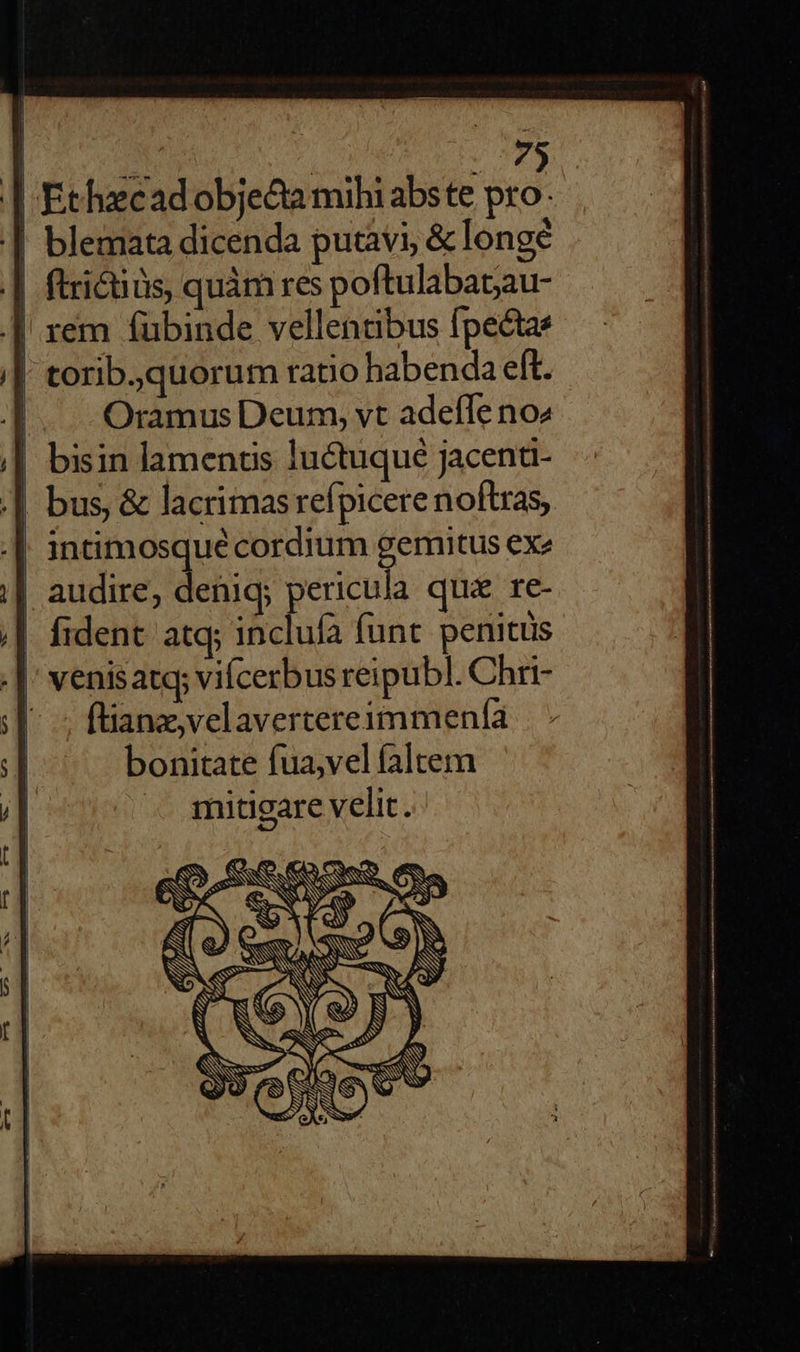 75
Et hæc ad objecta mihi abs te pro-
blemata dicenda putavi, & longè
ſtrictiùs, quàm res poſtulabat, au-
rem ſubinde vellentibus ſpecta-
torib., quorum ratio habenda eſt.
Oramus Deum, vt adeſſe no-
bis in lamentis luctuquè jacenti-
bus, & lacrimas reſpicere noſtras,
intimosquè cordium gemitus ex-
audire, deniq; pericula quæ re-
ſident atq; incluſa ſunt penitùs
venis atq; viſcerbus reipubl. Chri-
ſtianæ, vel avertere immenſa
bonitate ſua, vel ſaltem
mitigare velit.